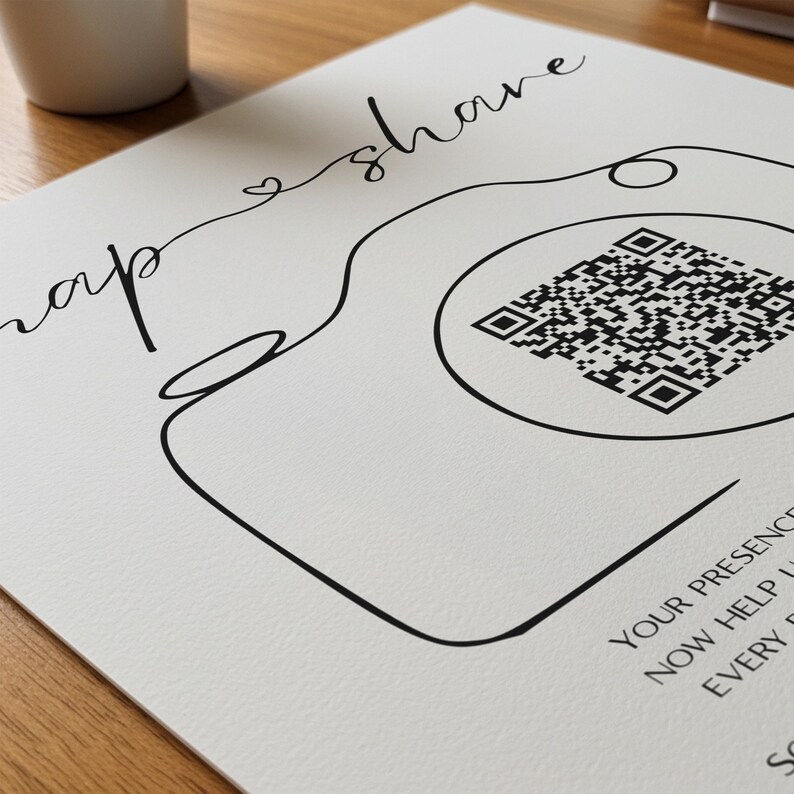 nap share
YOUR PRESENCE
NOW HELP
EVERY